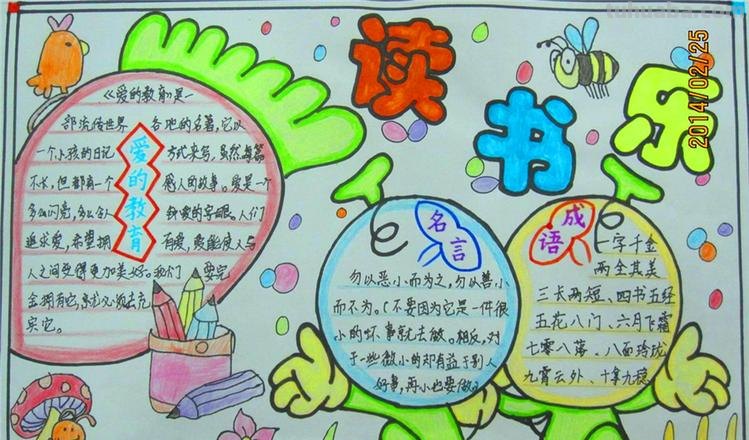 tuhuaba.com
2014/02/25
读书乐
《爱的教育》是一
部流传世界各地的名著,它以
一个小孩的日记方式来写,虽然每篇
不长,但都有一个感人的故事。爱是一个
多么闪亮,多么令人钟爱的字眼。人们
追求爱,希望拥有爱,爱能使人与
人之间变得更加美好。我们要完
全拥有它,就必须去充
实它。
爱的教育
名言
勿以恶小而为之,勿以善小
而不为。(不要因为它是一件很
小的坏事就去做。相反,对
于一些微小的却有益于别人
好事,再小也要做)
成语
一字千金
两全其美
三长两短、四书五经
五花八门、六月飞霜
七零八落、八面玲珑
九霄云外、十拿九稳